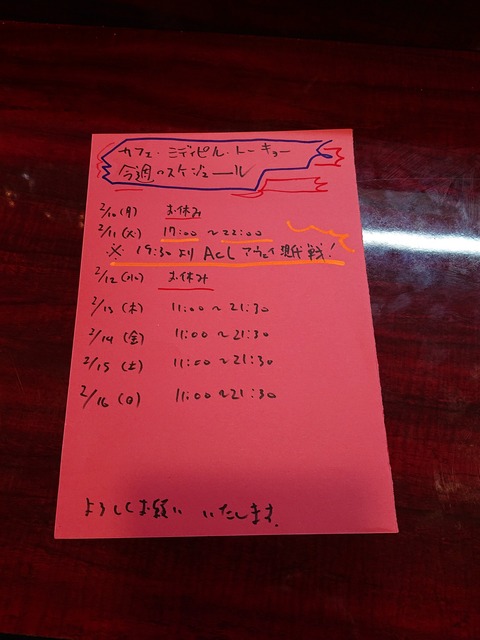 カフェ・ミディピル・トーキョー
今週のスケジュール
2/10(月) お休み
2/11(火) 17:00 ~ 22:00
※ 19:30より ACL アウェイ 戦!
2/12(水) お休み
2/13(木) 11:00~21:30
2/14(金) 11:00~21:30
2/15(土) 11:00~21:30
2/16(日) 11:00~21:30
よろしくお願い いたします.